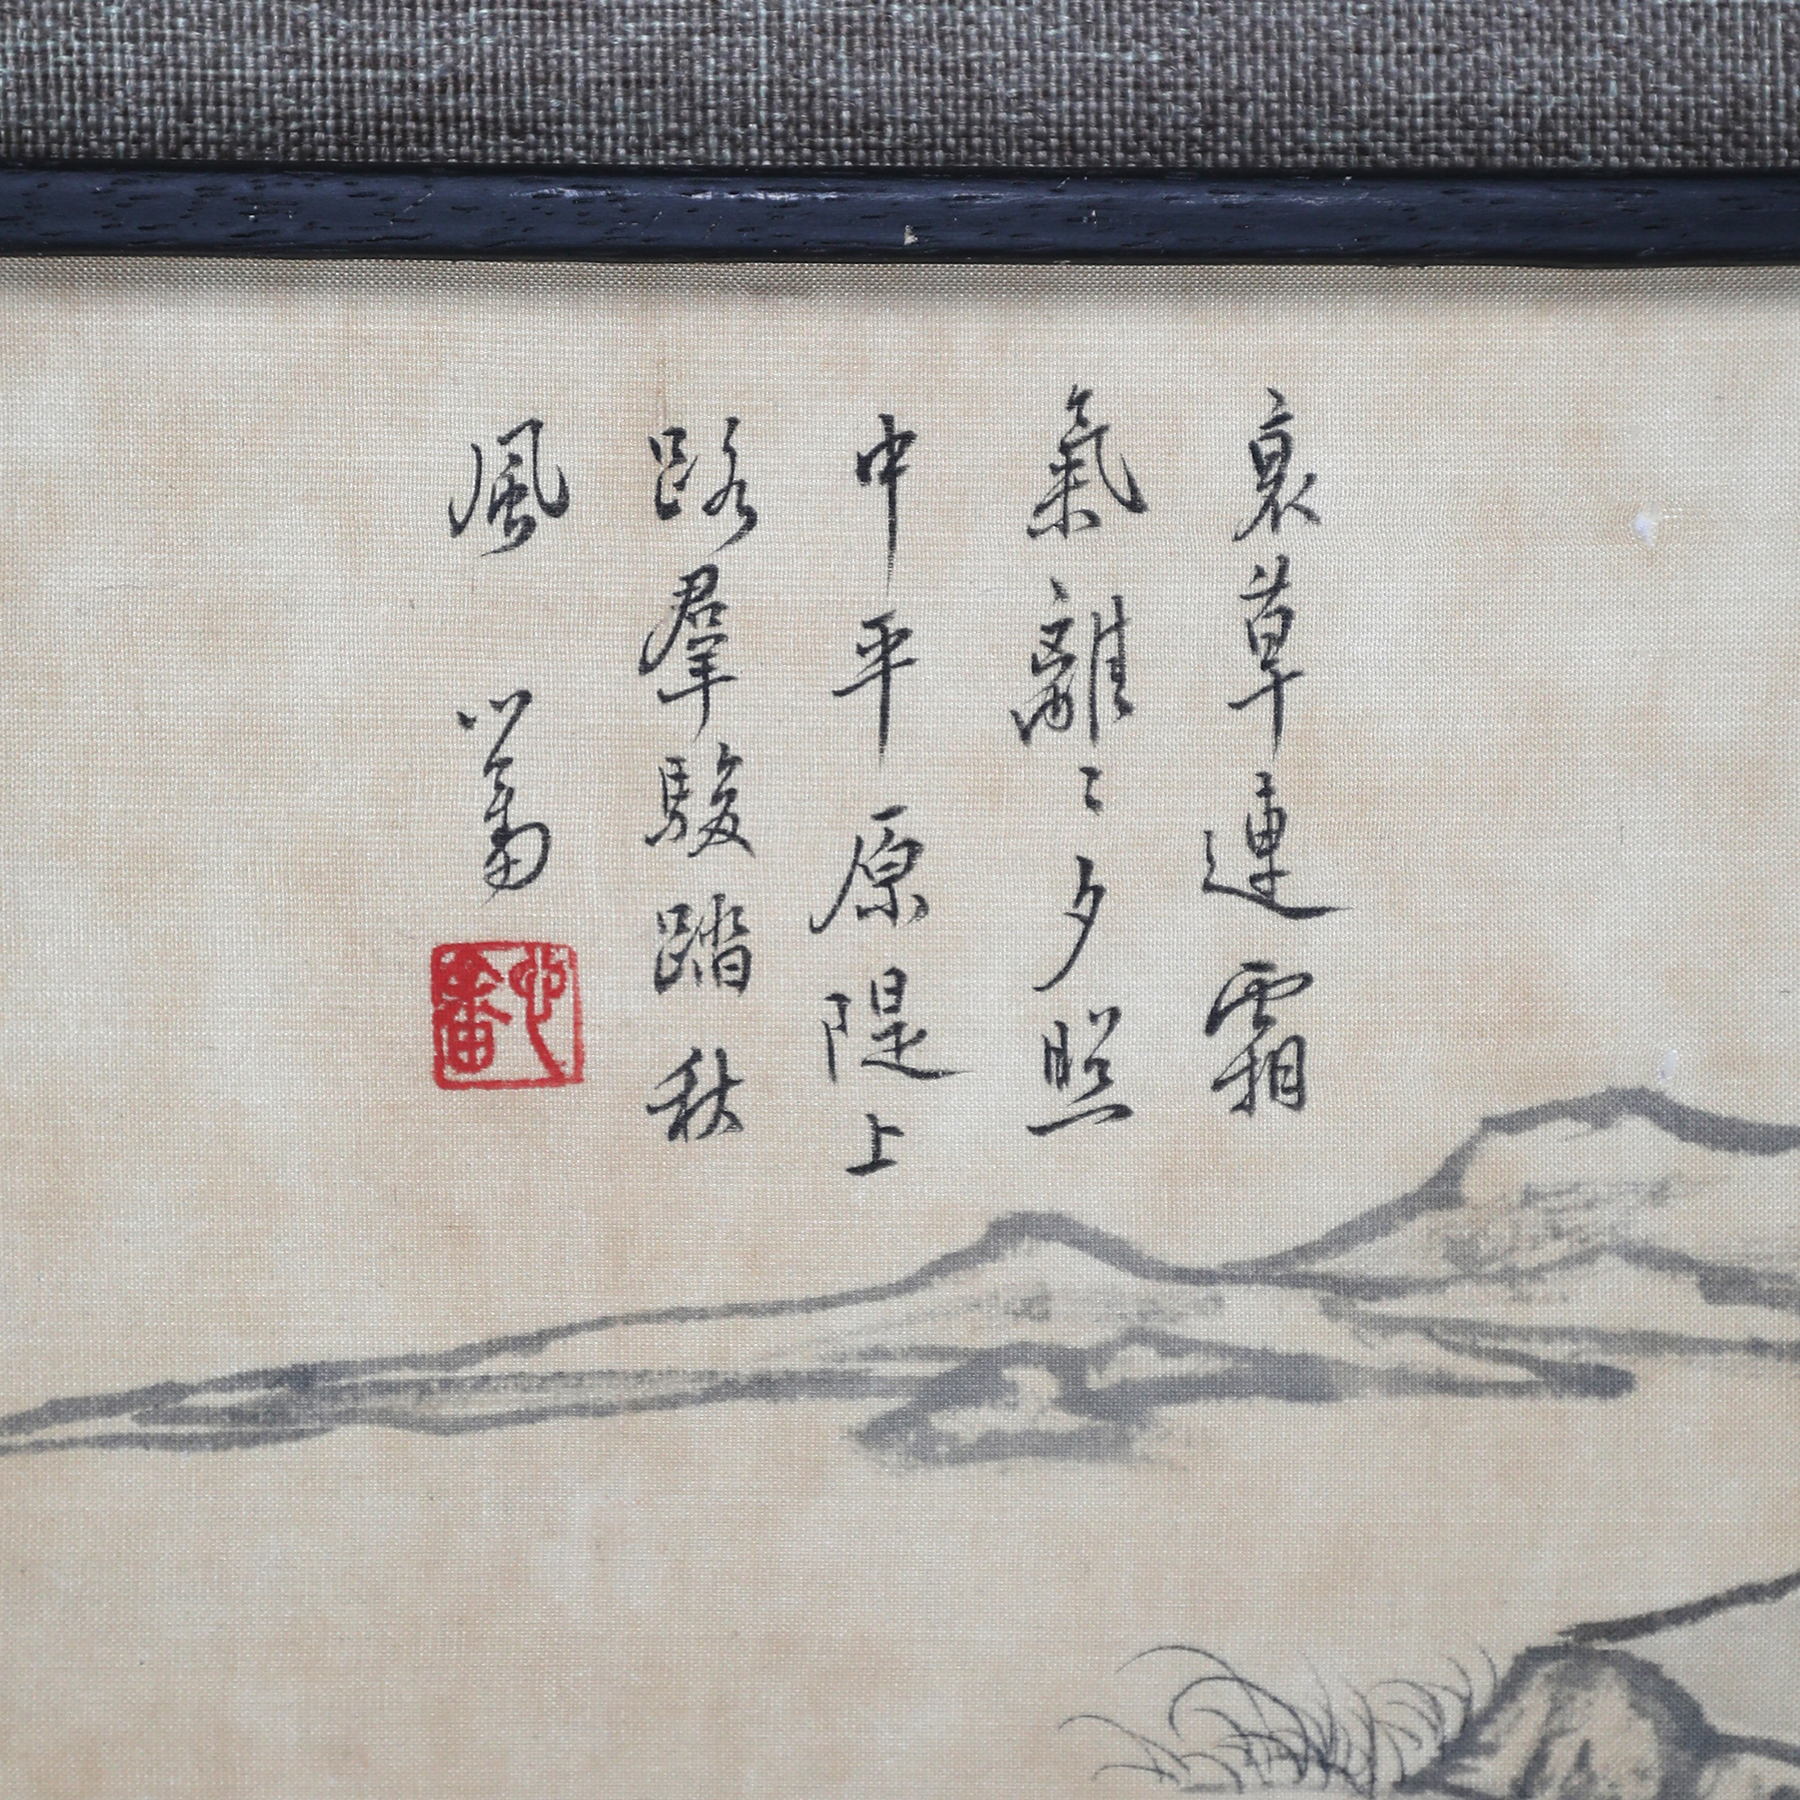 衰草連霜
氣離〻夕照
中平原隄上
路羣駿踏秋
風 心畬
心畬